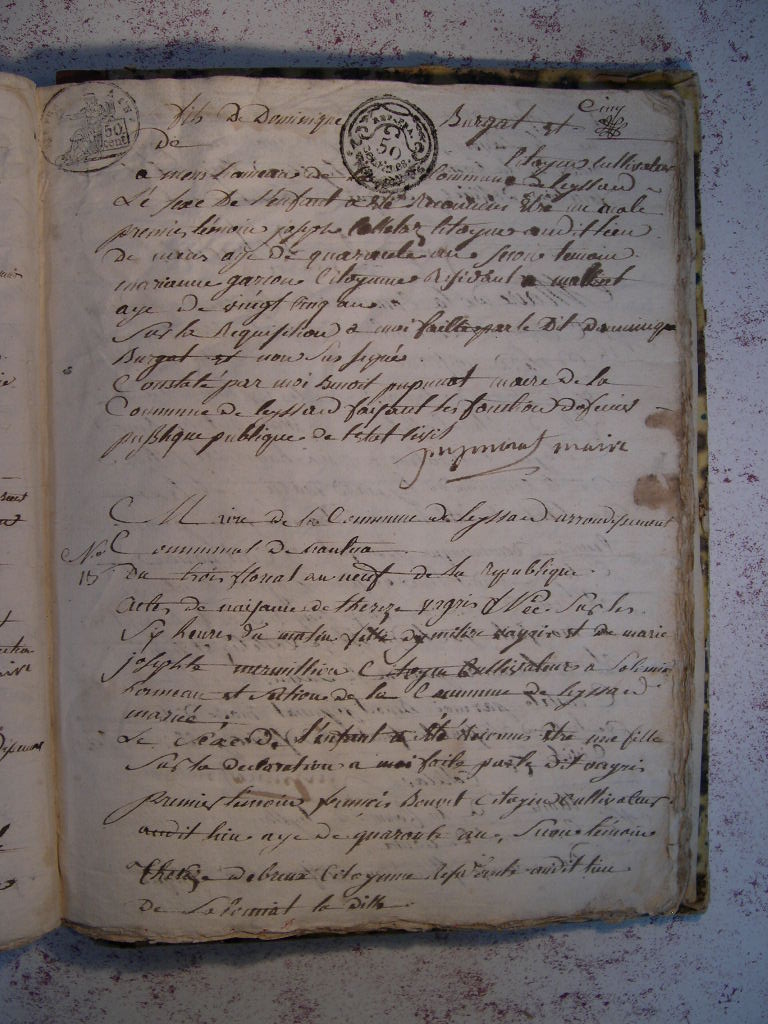 Cinq
fils De Dominique Burgat et
De
Citoyen Cultivateur
a mens Commune de leyssard
Le sexe De l'enfant a été Reconnus être un male
premier temoin joseph Citoyen audit lieu
De mens aye de quarante an secon temoin
marianne Citoyenne Residant a
aye De vingt Cinq ans
Sur la Requisition a moi faitte par le Dit dominique
Burgat et non Sus signés
Constaté par moi Benoit pupunat maire de la
Commune de leyssard faisant les fonction dofficier
publique de letat Civil
pupunat maire
Mairie de la Commune de leyssard arrondissement
No. 15 Communal de nantua
Du trois floreal an neuf de la republique
acte de naisance de thereze sur les
Six heures du matin fille de et de marie
josephte mermillion Citoyen Cultivateurs a Solomia
hameau et Section de la Commune de leyssard
mariée
Le Sexe de l'enfant a été Reconnus être une fille
Sur la declaration a moi faite par le dit
premier temoin francois Benoit Citoyen Cultivateur
audit lieu aye de quarante an, Secon temoin
Citoyenne Residante audit lieu
De la ditte
REP. FRA.
50
50 cent